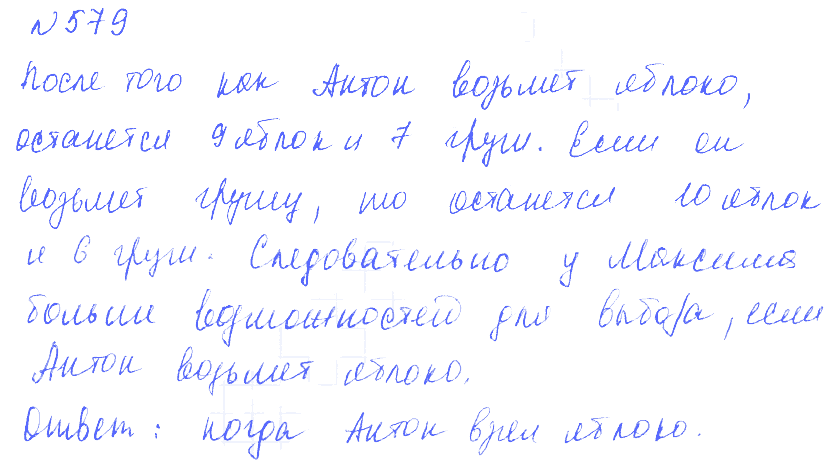 №579
После того как Антон возьмет яблоко,
останется 9 яблок и 7 груш. Если он
возьмет грушу, то останется 10 яблок
и 6 груш. Следовательно у Максима
больше возможностей для выбора, если
Антон возьмет яблоко.
Ответ: когда Антон взял яблоко.